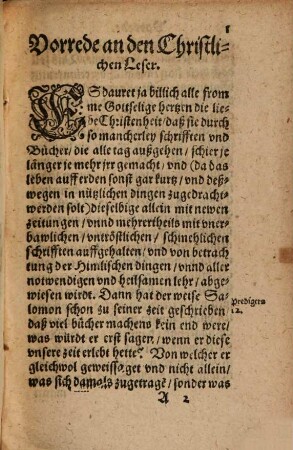 1
Vorrede an den Christli-
chen Leser.
ES dauret ja billich alle from
me Gottselige hertzen die lie-
be Christenheit / daß sie durch
so mancherley schrifften vnd
Bücher / die alle tag außgehen / schier je
länger je mehr jrr gemacht / vnd (da das
leben auff erden sonst gar kurtz / vnd deß-
wegen in nützlichen dingen zugedracht
werden solt) dieselbige allein mit newen
zeitungen / vnnd mehrertheils mit vner-
bawlichen / vntröstlichen / schmehlichen
schrifften auffgehalten / vnd von betrach
tung der Himlischen dingen / vnnd aller
notwendigen vnd heilsamen lehr / abge-
wiesen wirdt. Dann hat der weise Sa-
lomon schon zu seiner zeit geschrieben
Predigern
12.
daß viel bücher machens kein end were /
was würdt er erst sagen / wenn er diese
vnsere zeit erlebt hette? Von welcher er
gleichwol geweissaget vnd nicht allein /
was sich damols zugetragẽ / sonder was
A 2